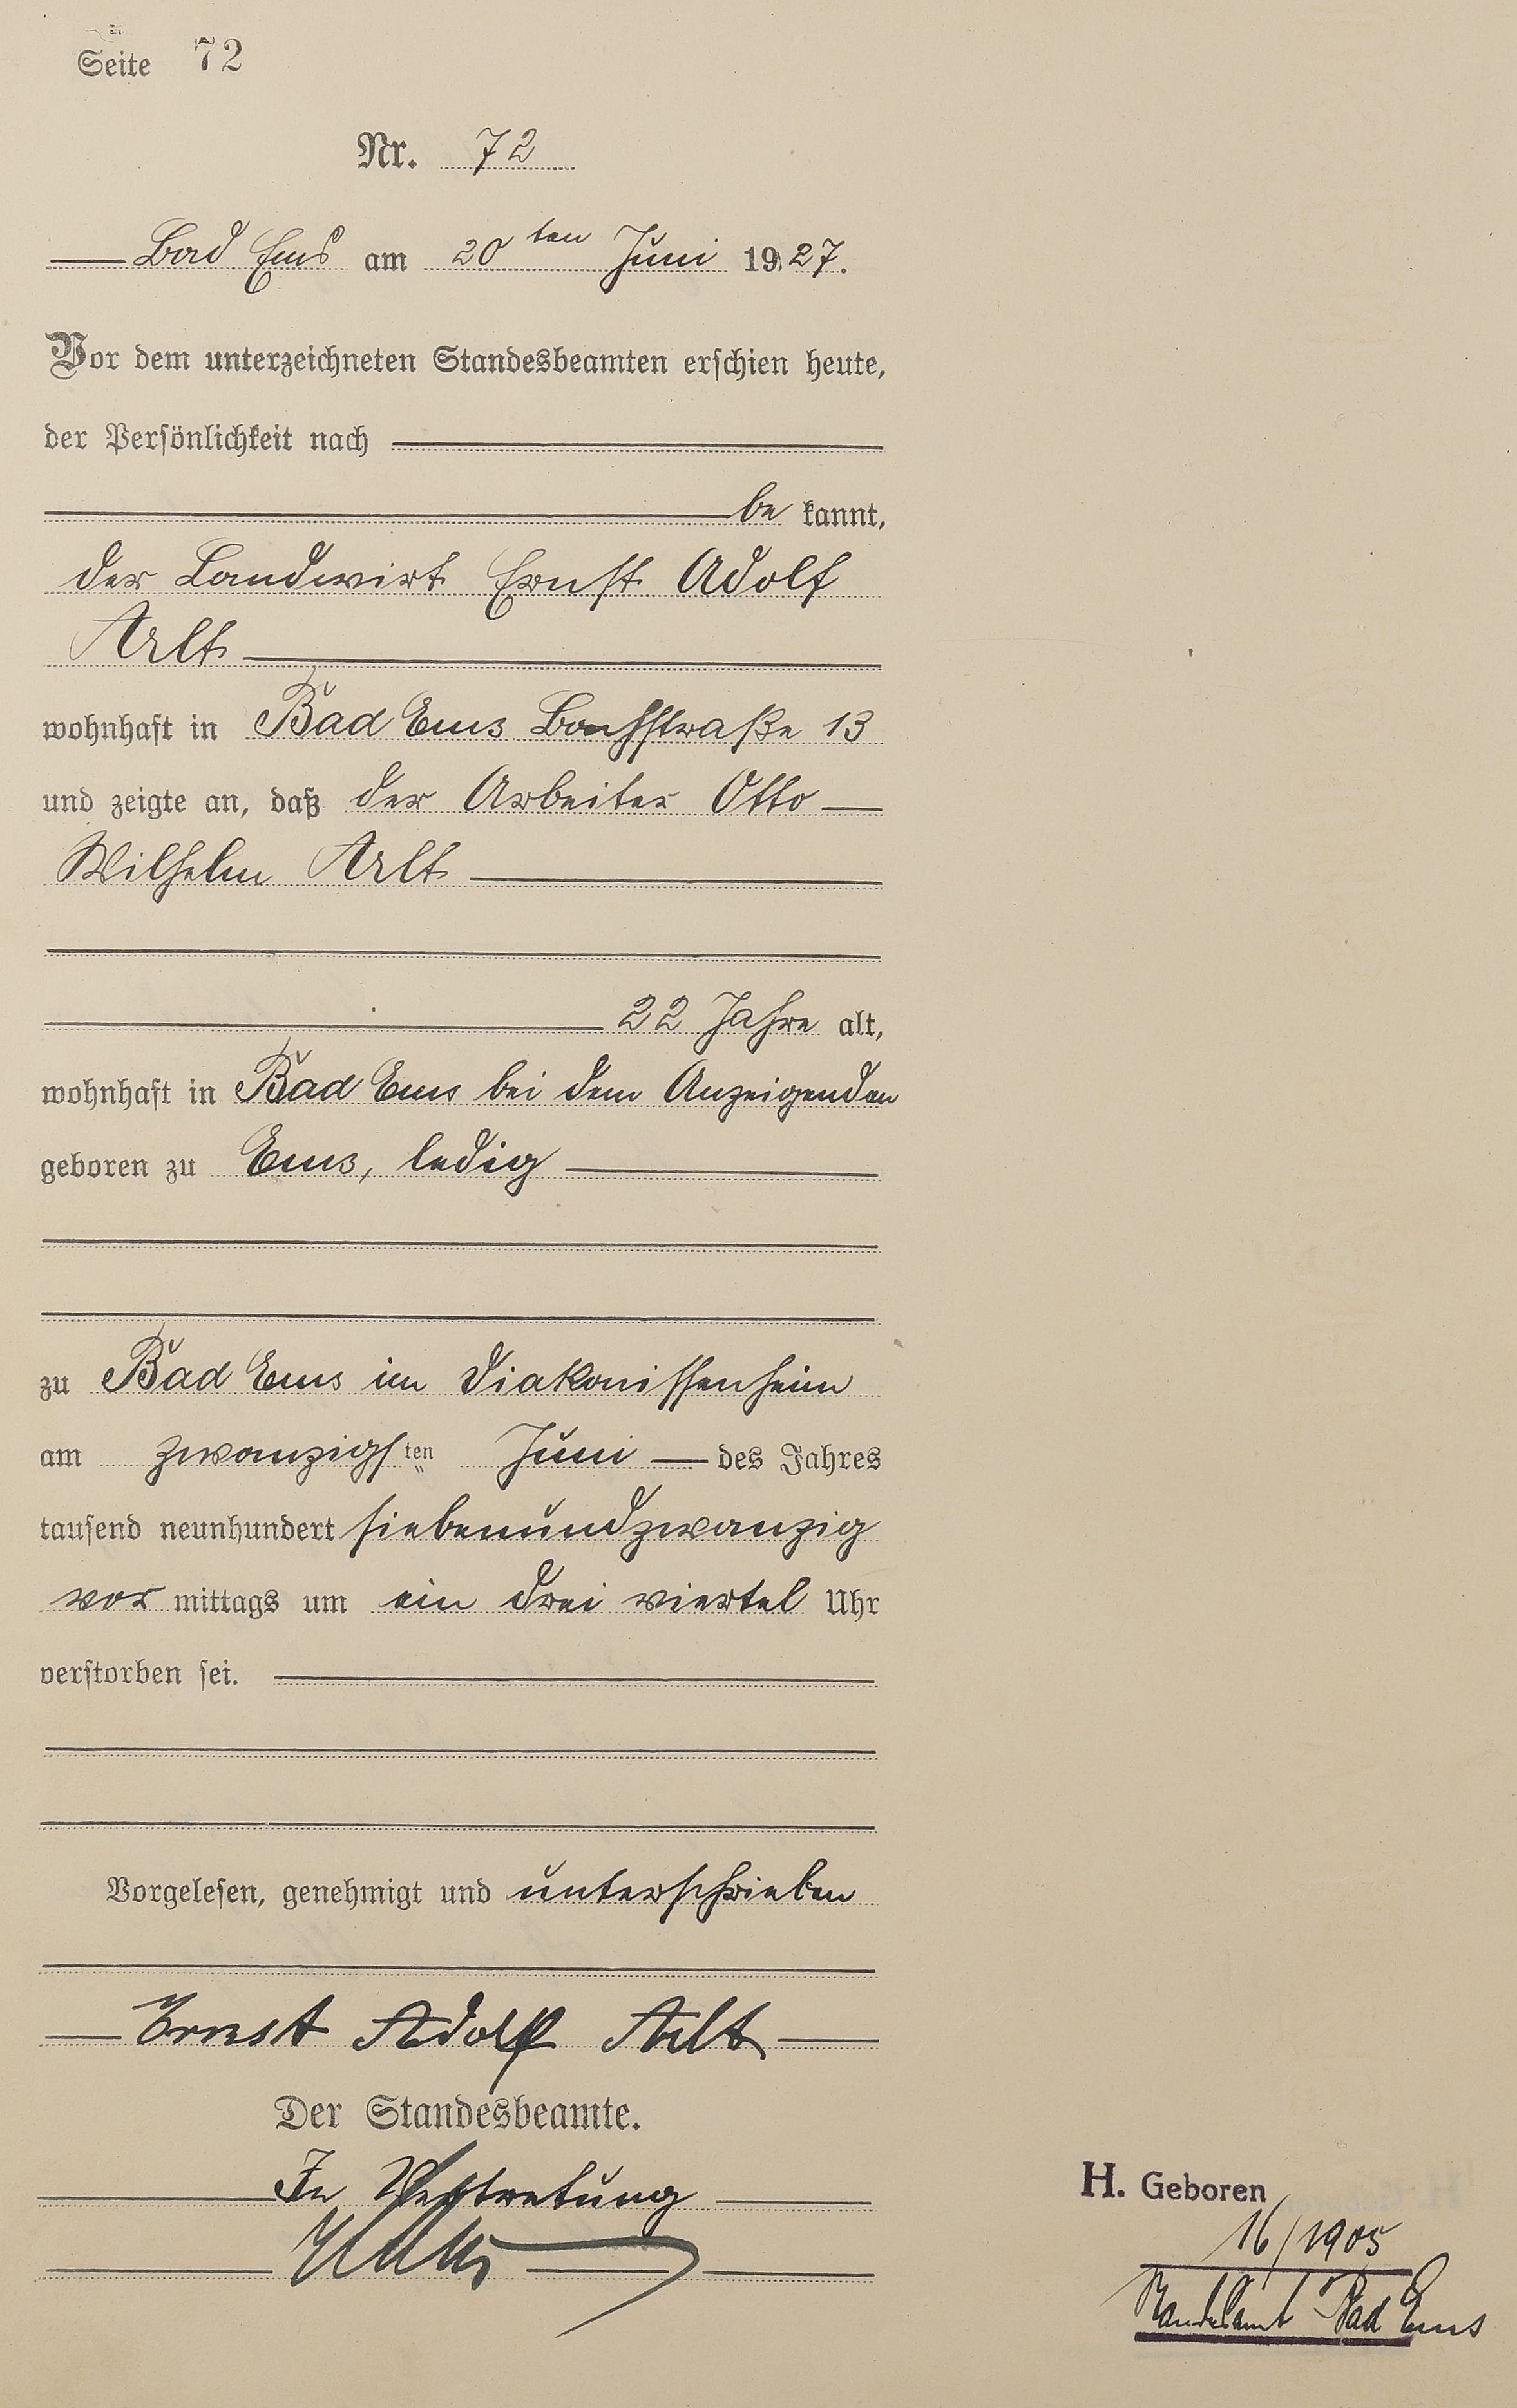 Seite 72
Nr. 72
Bad Ems am 20ten Juni 1927.
Vor dem unterzeichneten Standesbeamten erschien heute,
der Persönlichkeit nach
be kannt,
der Landwirt Ernst Adolf
Arlt
wohnhaft in Bad Ems 13
und zeigte an, daß der Arbeiter Otto
Wilhelm Arlt
22 Jahre alt,
wohnhaft in Bad Ems bei dem Anzeigenden
geboren zu Ems, ledig
zu Bad Ems im Diakonissenheim
am zwanzigsten Juni des Jahres
tausend neunhundert siebenundzwanzig
vor mittags um ein drei viertel Uhr
verstorben sei.
Vorgelesen, genehmigt und unterschrieben
Ernst Adolf Arlt
Der Standesbeamte.
In Vertretung
H. Geboren
16/1905
Standesamt Bad Ems